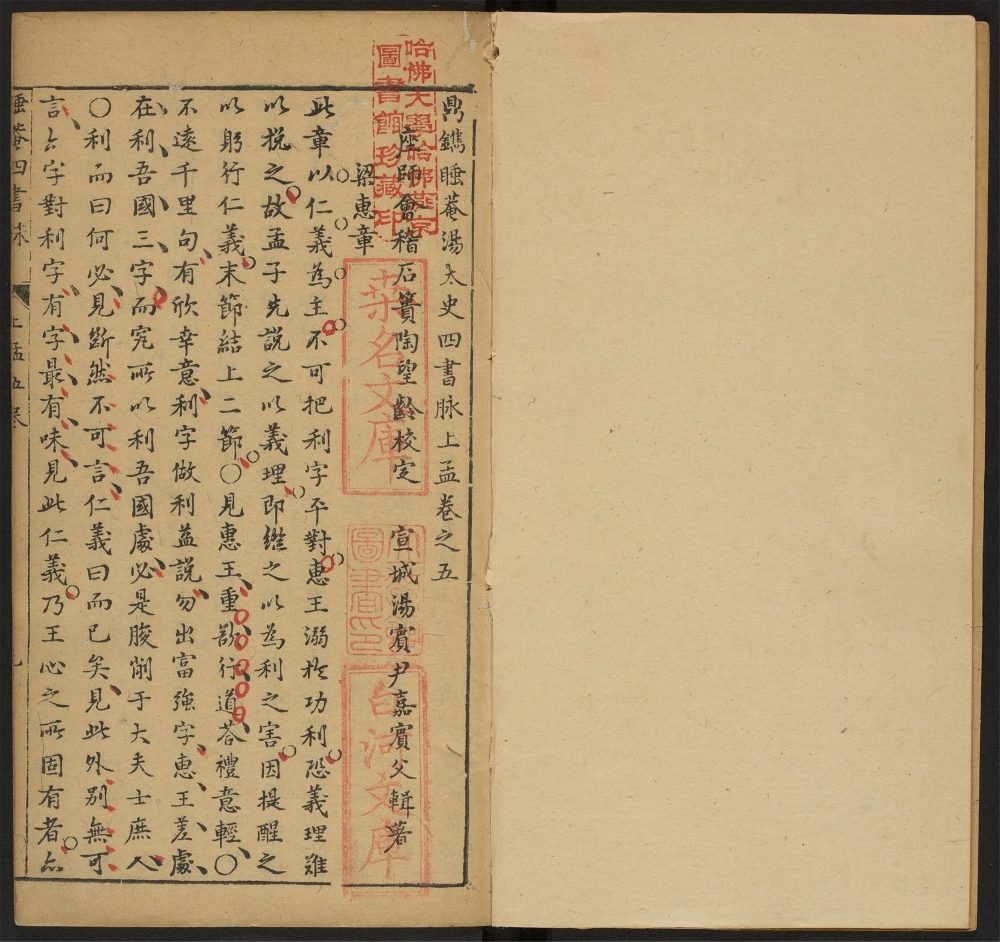 鼎鐫睡菴湯太史四書脉上孟卷之五
座師會稽 石簣陶望齡校定 宣城湯賓尹嘉賓父輯著
梁惠章
此章以仁義為主不可把利字平對惠王溺於功利恐義理難
以梲之故孟子先說之以義理即繼之以為利之害因提醒之
以躬行仁義末節結上二節〇見惠王重訪行道荅禮意輕〇
不遠千里句有欣幸意利字做利益說勿出富強字惠王差處
在利吾國三字而究所以利吾國處必是朘削于大夫士庶人
〇利而曰何必見斷然不可言仁義曰而已矣見此外別無可
言亦字對利字有字最有味見此仁義乃王心之所固有者亦
睡菴四書脉
上孟五卷
哈佛大學哈佛燕京
圖書館珍藏印
桒名文庫
白河文庫